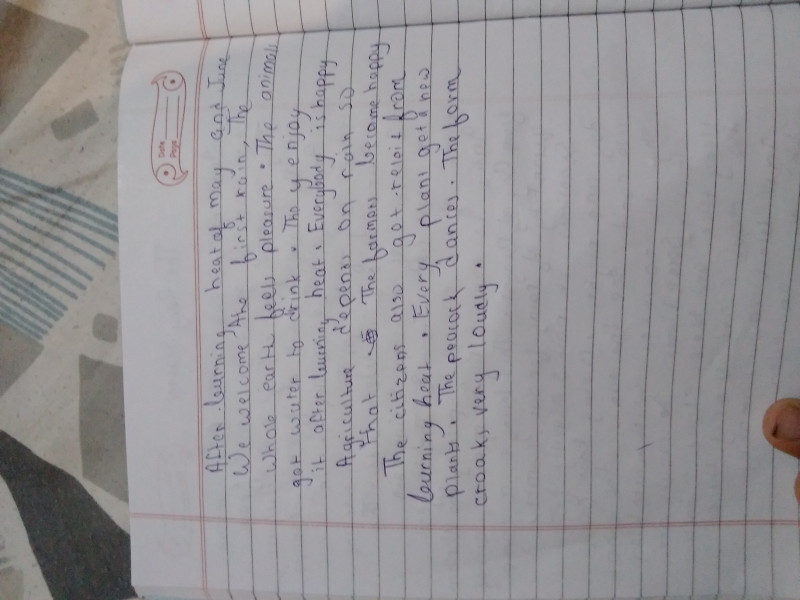 Date
Page
After burning heat of may and June
We welcome the first rain, The
whole earth feels pleasure. The animals
got water to drink. They enjoy
it after burning heat. Everybody is happy
Agriculture depends on rain so
that The farmers become happy
The citizens also got reloit from
burning heat. Every plant get new
plants. The peacock dances. The form
croaks very loudly.